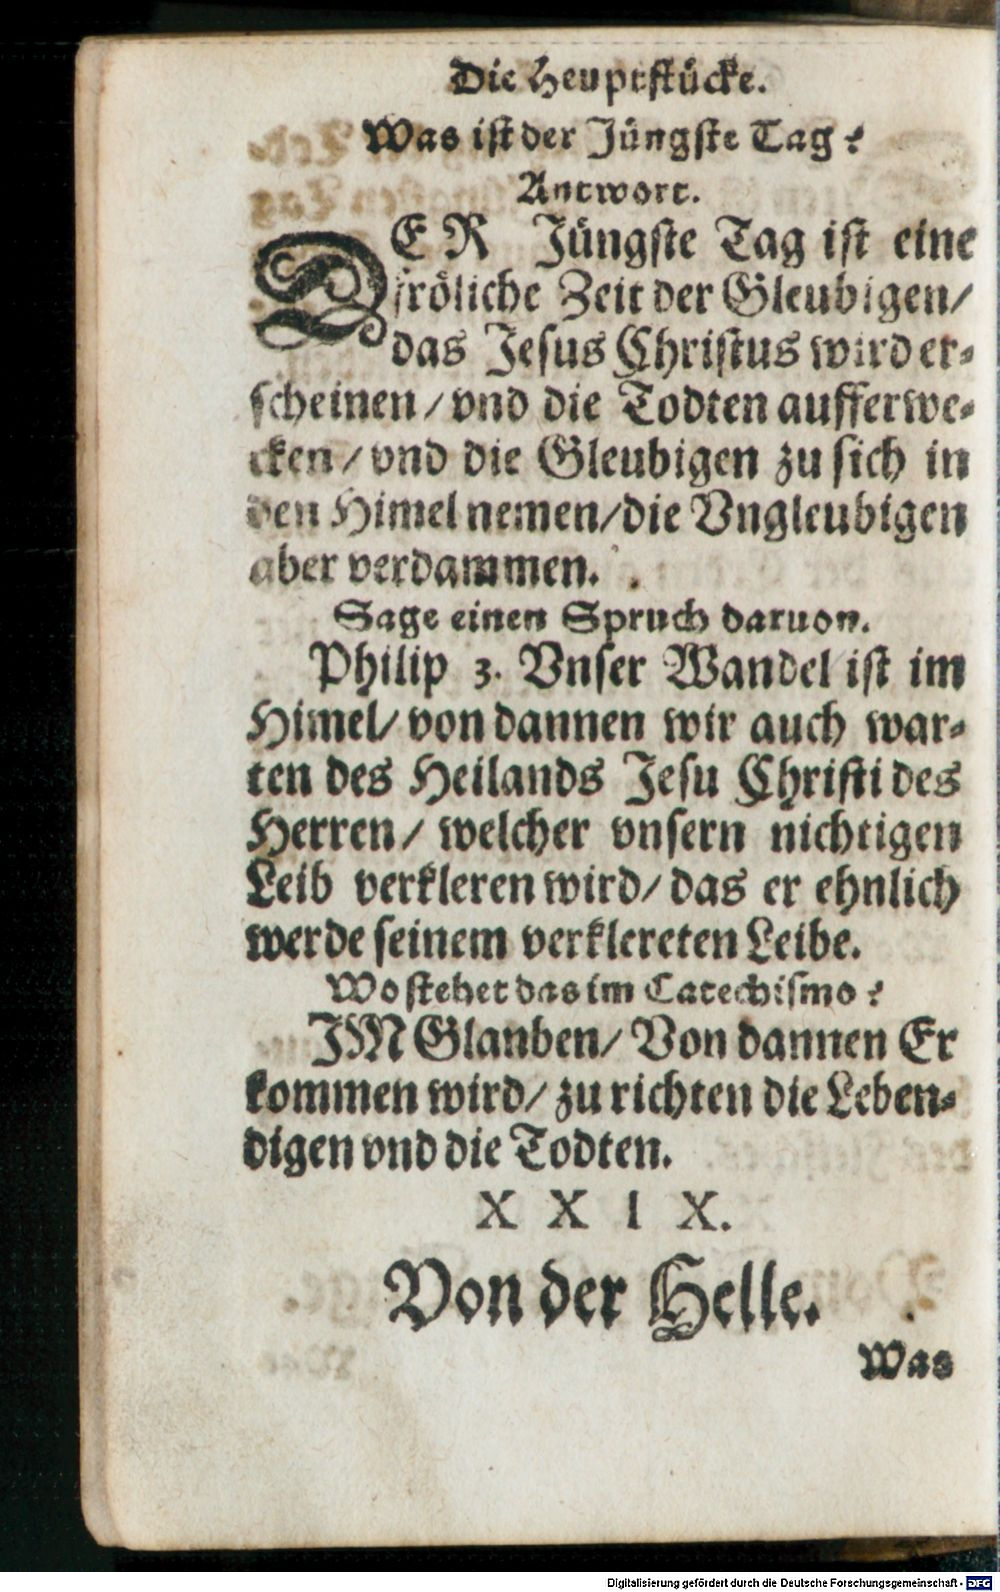 Die Heuptstücke.
Was ist der Jüngste Tag?
Antwort.
DER Jüngste Tag ist eine
fröliche Zeit der Gleubigen/
das Jesus Christus wird er-
scheinen/ vnd die Todten aufferwe-
cken/ vnd die Gleubigen zu sich in
den Himel nemen/ die Vngleubigen
aber verdammen.
Sage einen Spruch daruon.
Philip 3. Vnser Wandel ist im
Himel/ von dannen wir auch war-
ten des Heilands Jesu Christi des
Herren/ welcher vnsern nichtigen
Leib verkleren wird/ das er ehnlich
werde seinem verklereten Leibe.
Wo stehet das im Catechismo?
IM Glauben/ Von dannen Er
kommen wird/ zu richten die Leben-
digen vnd die Todten.
XXIX.
Von der Helle.
Was
Digitalisierung gefördert durch die Deutsche Forschungsgemeinschaft - DFG